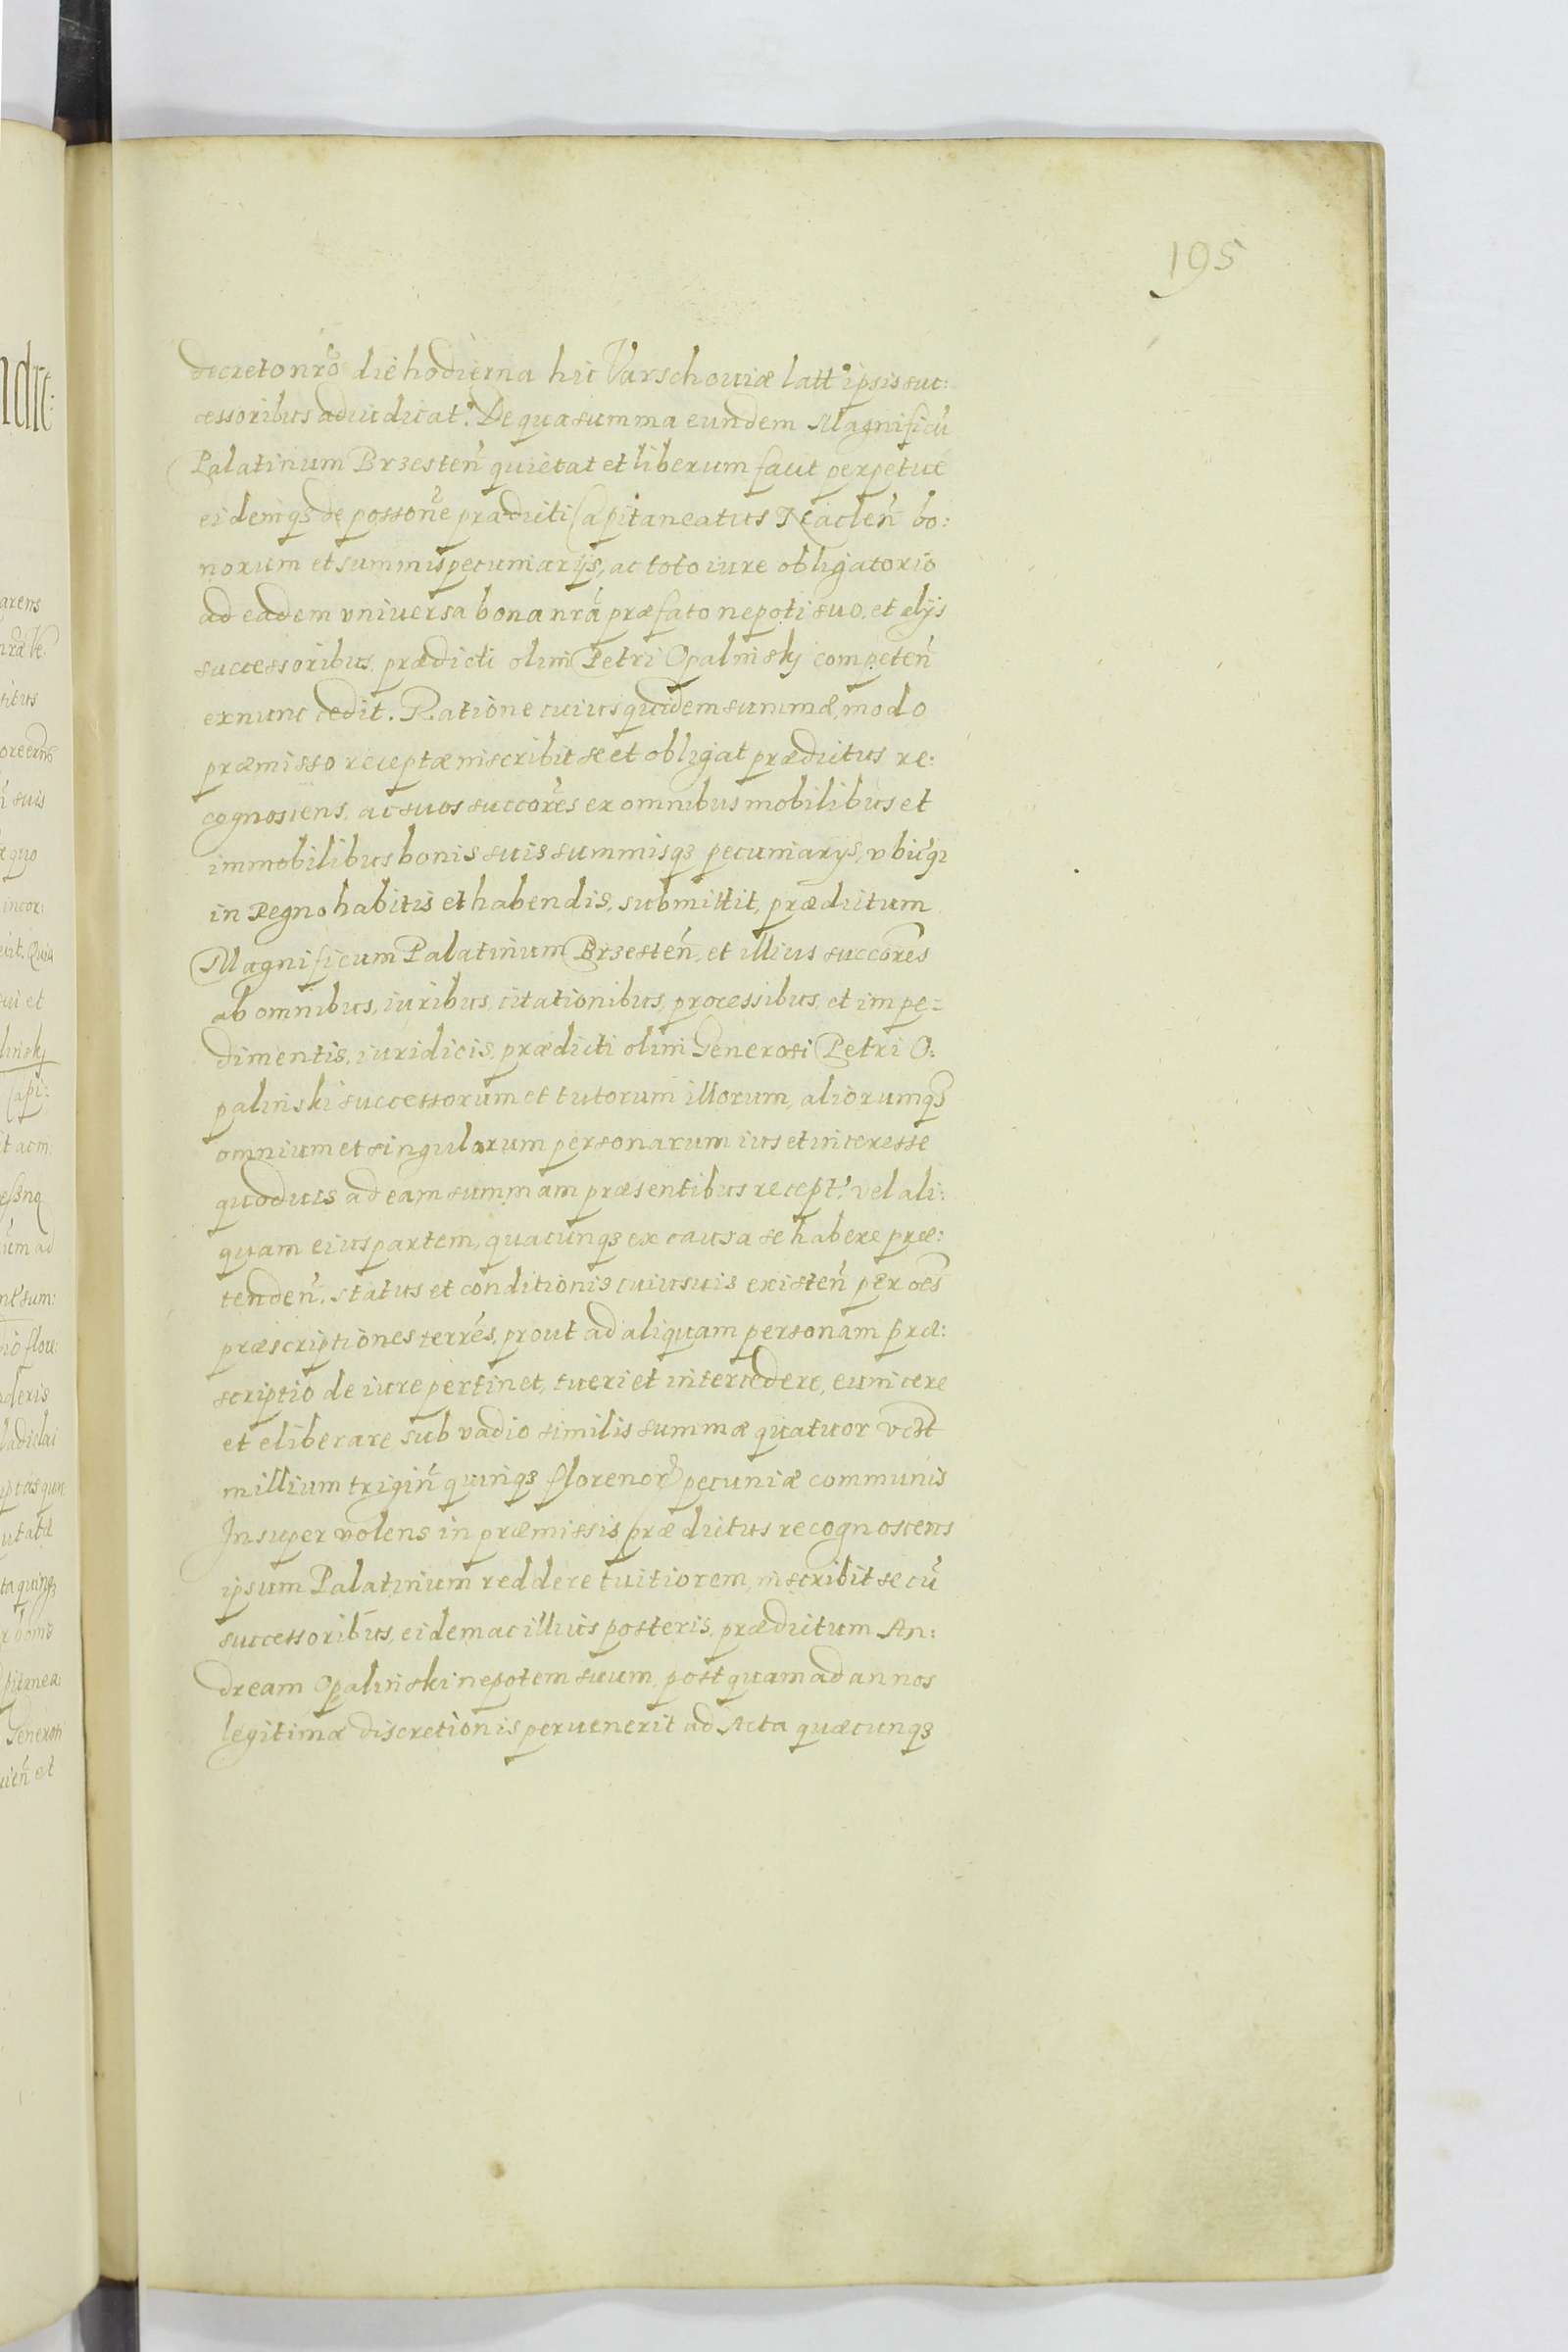 195
decreto nrõ die hodierna hic Varschouiæ latt° ipsis suc:
cessoribus adiudicat°. De qua summa eundem Magnificũ
Palatinum Brzesteñ quietat et liberum facit perpetue
eidemq3 de possone prædicti Capitaneatus Nacleñ bo:
norum et summis pecuniarijs, ac toto iure obligatorio
ad eadem vniuersa bona nrã præfato nepoti suo, et alijs
successoribus prædicti olim Petri Opalinskj competeñ
ex nunc cedit. Ratione cuius quidem summæ, modo
præmisso receptæ inscribit se et obligat prædictus re:
cognoscens, ac suos succores ex omnibus mobilibus et
immobilibus bonis suis summisq3 pecuniarys, vbicq3
in Regno habitis et habendis, submittit, prædictum
Magnificum Palatinum Brzesteñ, et illius succores
ab omnibus, iuribus, citationibus, processibus, et impe-
dimentis, iuridicis, prædicti olim Generosi Petri O:
palinski successorum et tutorum illorum, aliorumq3
omnium et singularum personarum ius et interesse
quoduis ad eam summam præsentibus recept° vel ali:
quam eius partem, quacunq3 ex causa se habere præ:
tendeñ, status et conditionis cuiusuis existeñ per oẽs
præscriptiones terrẽs, prout ad aliquam personam præ:
scriptio de iure pertinet, tueri et intercedere, euincere
et eliberare sub vadio similis summæ quatuor vcst
millium trigiñ quinq3 florenor pecuniæ communis
Insuper volens in præmissis prædictus recognoscens
ipsum Palatinum reddere tuitiorem, inscribit se cũ
successoribus, eidem ac illius posteris, prædictum An:
dream Opalinski nepotem suum, postquam ad annos
legitimæ discretionis peruenerit ad Acta quæcunq3